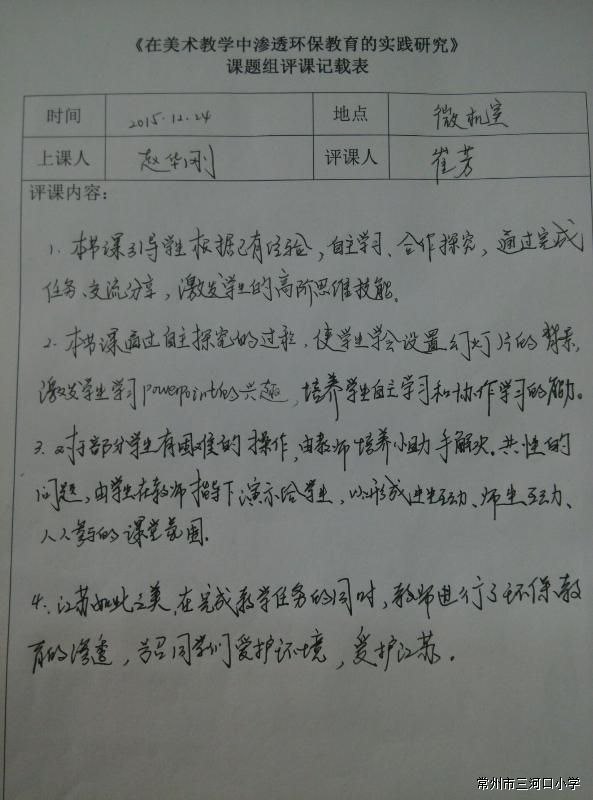 《在美术教学中渗透环保教育的实践研究》
课题组评课记载表
时间 2015.12.24 地点 微机室
上课人 赵华刚 评课人 崔芳
评课内容：
1. 本节课引导学生根据已有经验，自主学习、合作探究，通过完成
任务、交流分享，激发学生的高阶思维技能。
2. 本节课通过自主探究的过程，使学生学会设置幻灯片的背景，
激发学生学习powerpoint的兴趣，培养学生自主学习和协作学习的能力。
3. 对于部分学生有困难的操作，由教师培养小助手解决。共性的
问题，由学生在教师指导下演示给学生，以形成生生互动、师生互动、
人人参与的课堂氛围。
4. 江苏如此之美，在完成教学任务的同时，教师进行了环保教
育的渗透，号召同学们爱护环境，爱护江苏。
常州市三河口小学